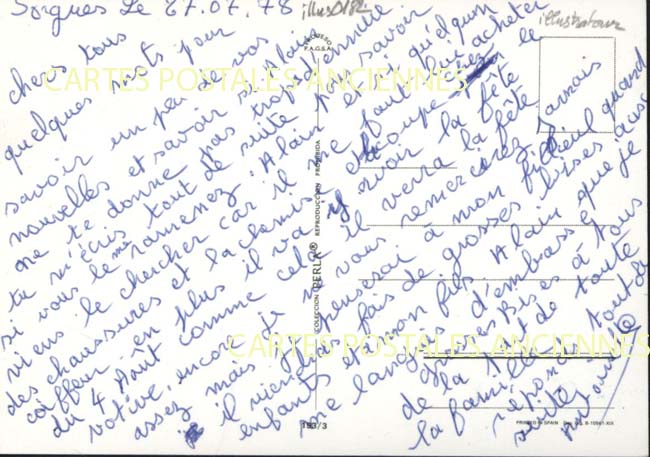 Sorgues Le 27.07.78
illustrateur
chers tous
quelques mots pour
savoir un peu de vos
nouvelles et savoir si Alain
ne te donne pas trop d'ennuie
tu m'écris tout de suite pour savoir
si vous le ramenez Alain et si quelqu'un
viens le chercher car il me faut lui acheter
des chaussures et la chemise et s'occuper le
coiffeur en plus il va y avoir la fête
du 4 Août comme cela il verra la fête
votive. encore je ne vous remercirez jamais
assez mais je penserai à mon filleul quand
il viendra
enfants et mon fils Alain que je
me langui d'embrasser
fais de grosses bises aux
grosses Bises à tous
de la part de toute
la famille
répond tout de
suite
CARTES POSTALES ANCIENNES
CARTES POSTALES ANCIENNES
P.A.G.S.A.
COLECCION PERLA® REPRODUCCION PROHIBIDA
183/3
PRINTED IN SPAIN